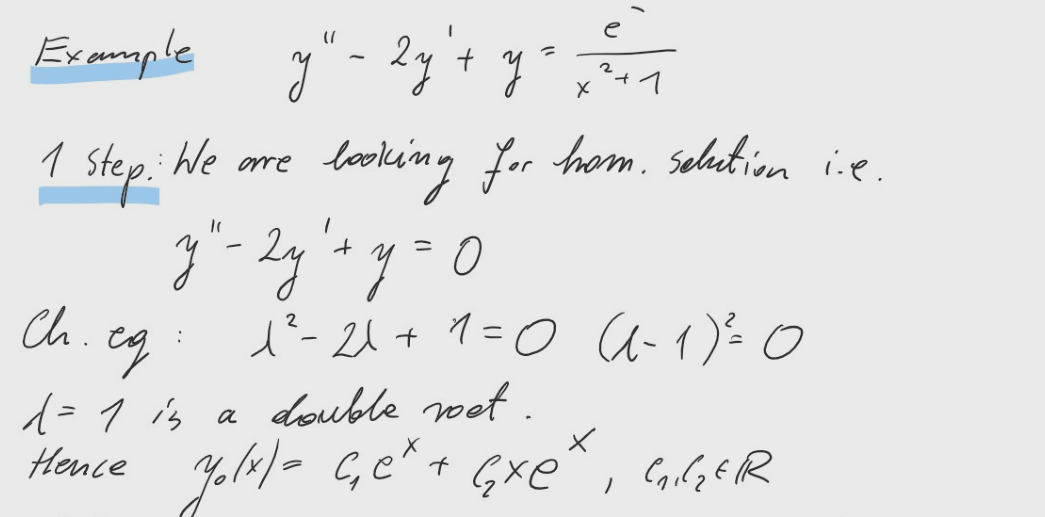 Example y'' - 2y' + y = e^- / x² + 1
1 Step: We are looking for hom. solution i.e.
y'' - 2y' + y = 0
Ch. eq : λ² - 2λ + 1 = 0 (λ - 1)² = 0
λ = 1 is a double root.
Hence y₀(x) = C₁e^x + C₂xe^x, C₁, C₂ ∈ R